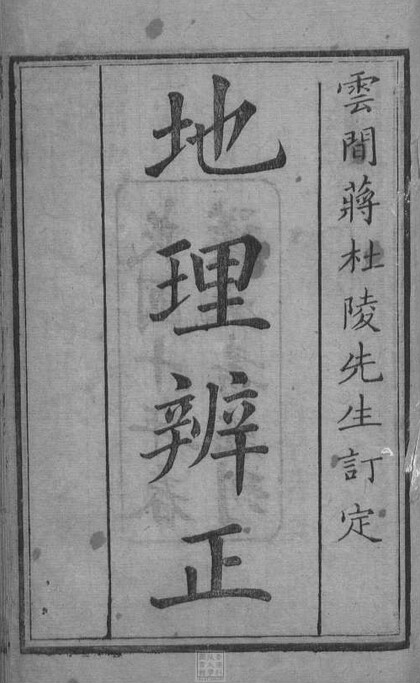 雲間蔣杜陵先生訂定
地理辨正